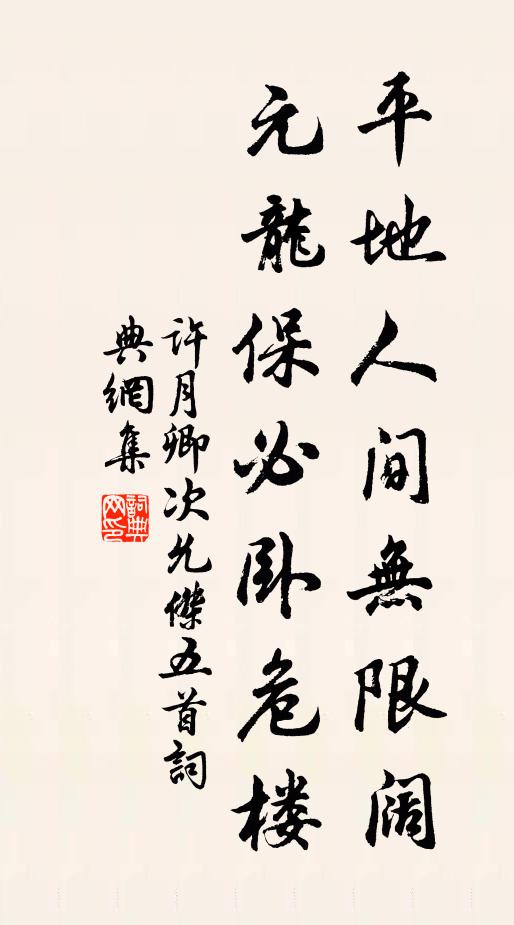 平地人间無限阔
元龍保必卧危楼
許月卿次允傑五首詞
典網集
詞典网印